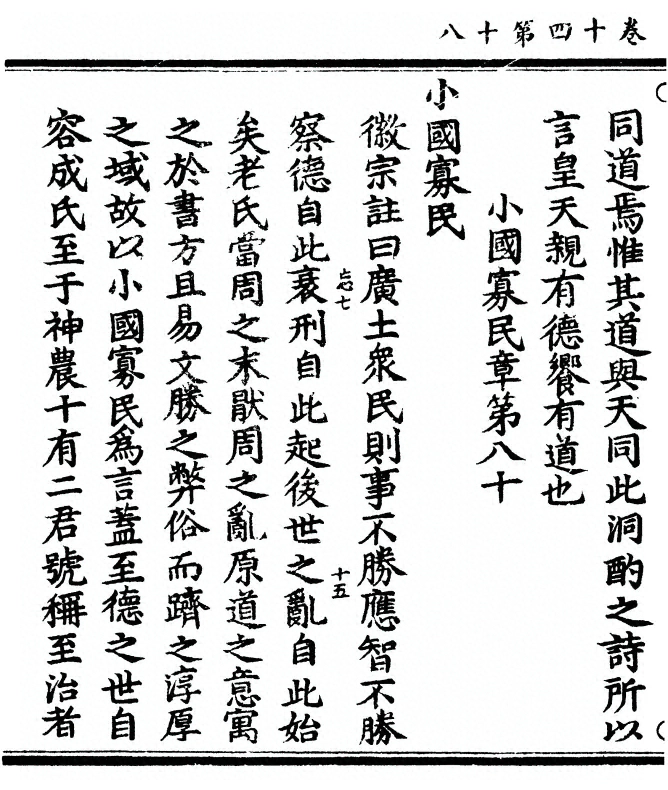 卷十四第十八
同道焉惟其道與天同此洞酌之詩所以
言皇天親有德饗有道也
小國寡民章第八十
小國寡民
徽宗註曰廣土衆民則事不勝應智不勝
察德自此衰刑自此起後世之亂自此始
忐七
十五
矣老氏當周之末厭周之亂原道之意寓
之於書方且易文勝之弊俗而躋之淳厚
之域故以小國寡民爲言蓋至德之世自
容成氏至于神農十有二君號稱至治者